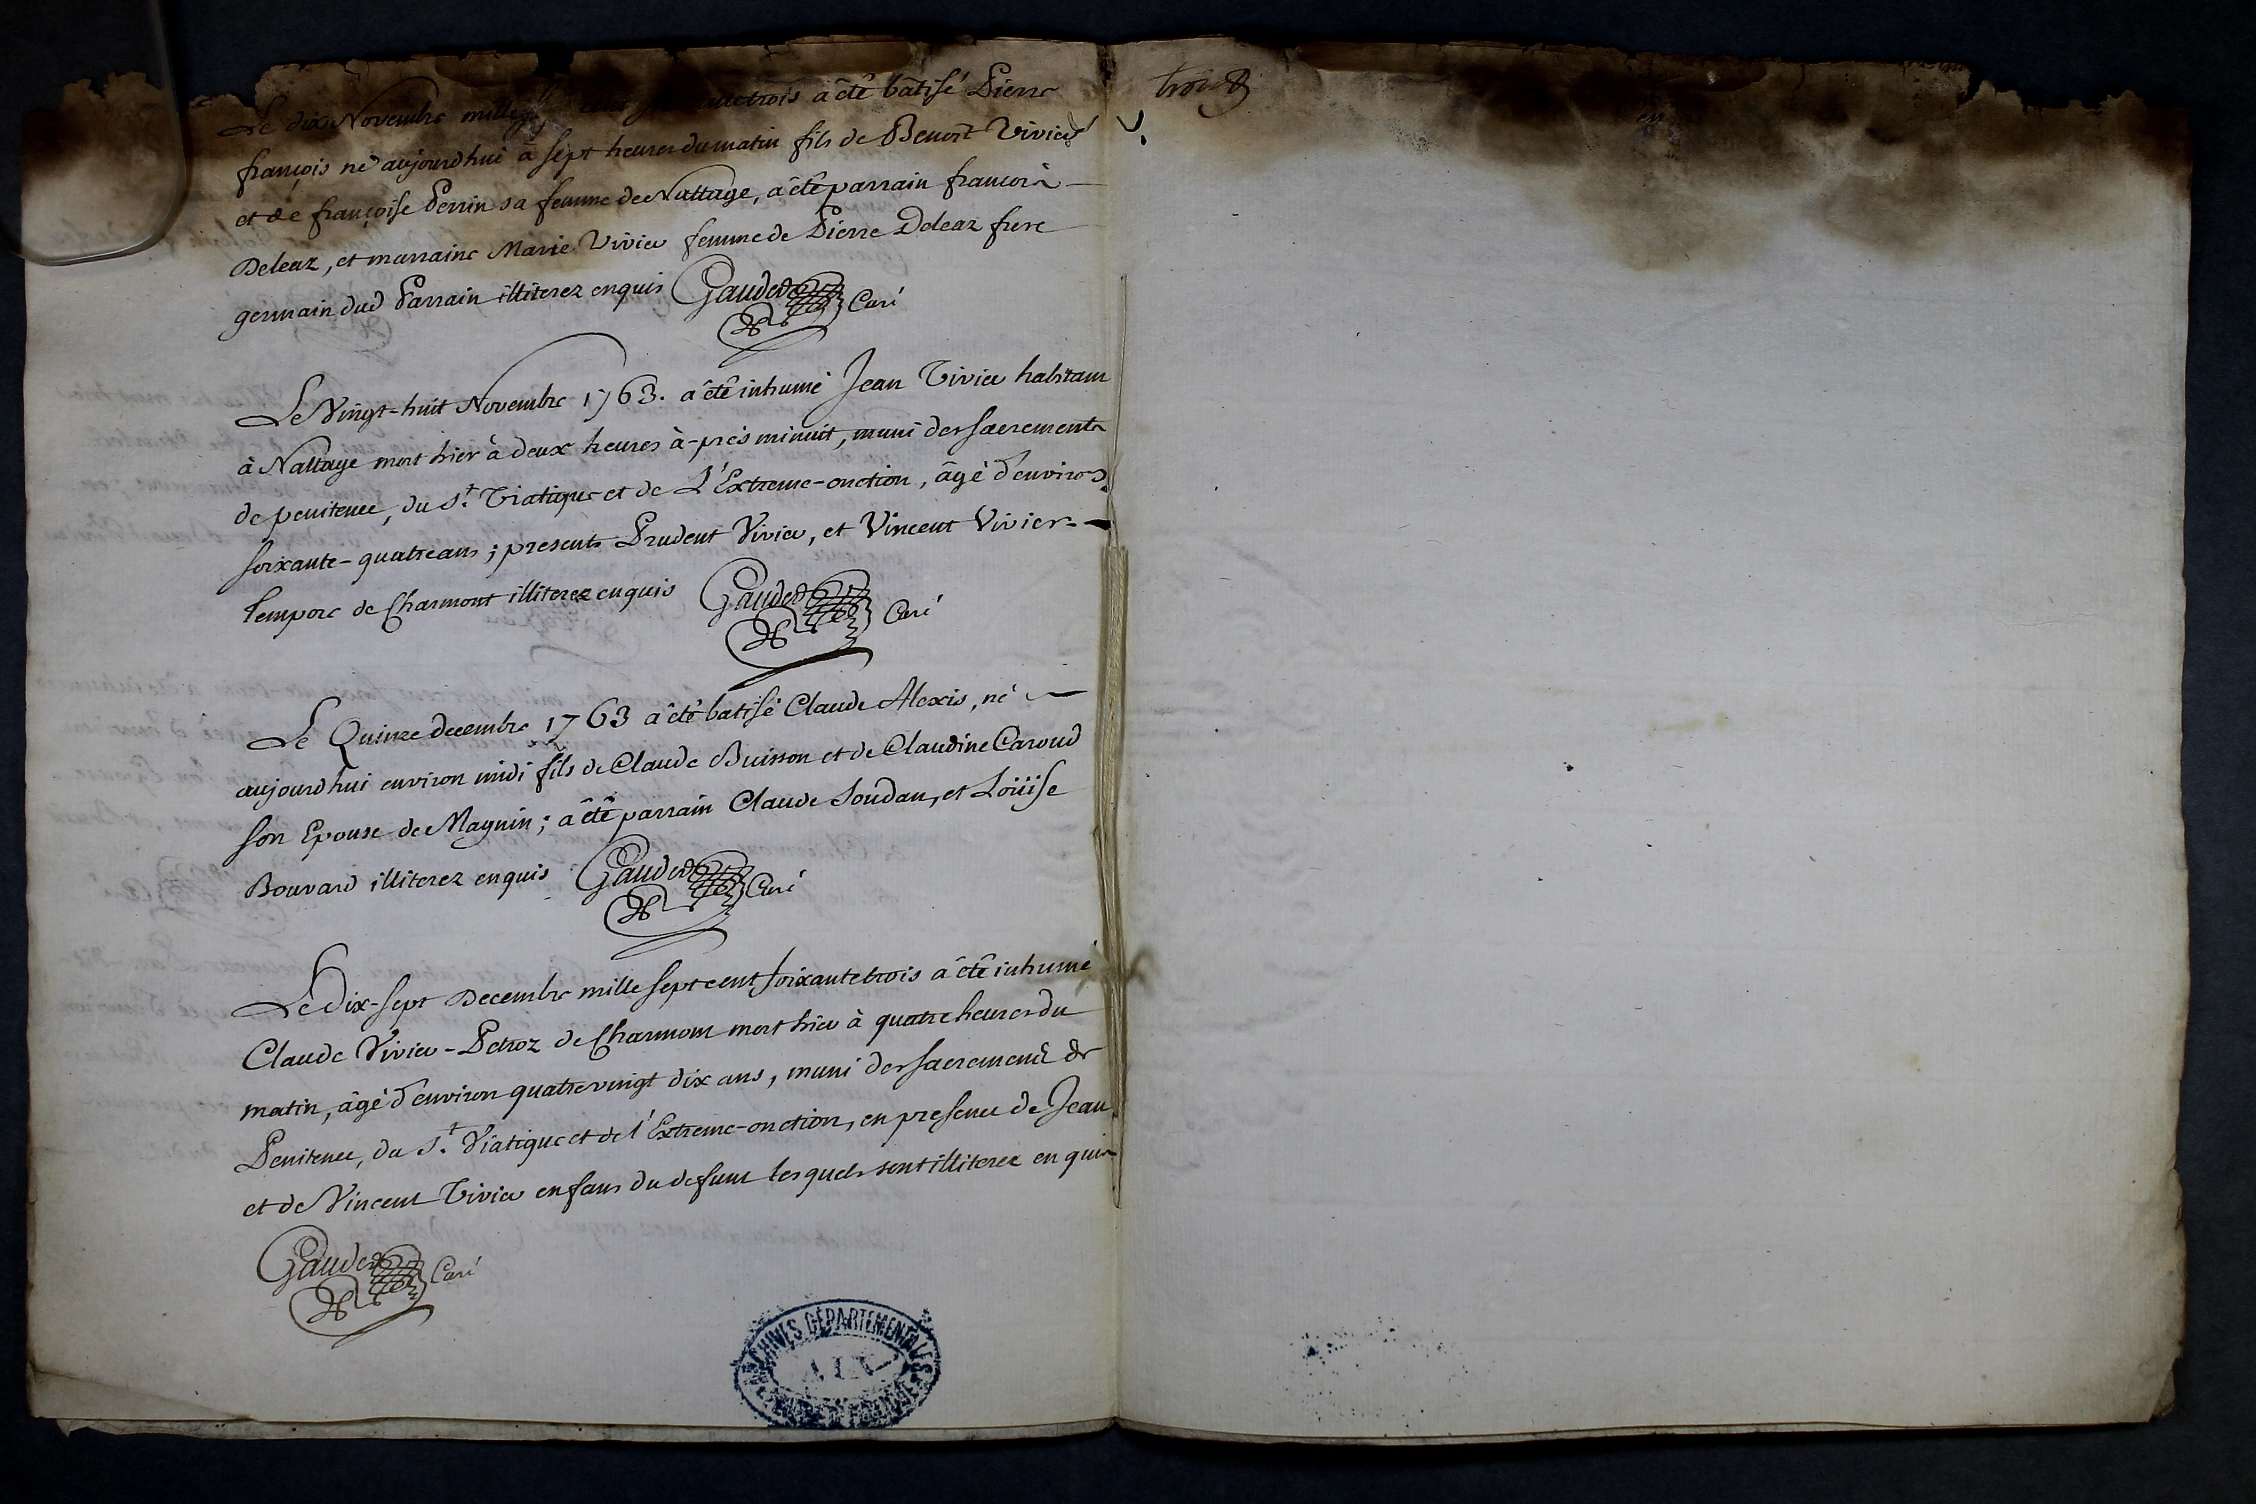 Le dix Novembre mille trois a êtê bâtisé Pierre
françois né aujourdhui à sept heures du matin fils de Benoît Vivier
et de françoise Perrin sa femme de Nattage, a êtê parrain françois
Deleaz, et marraine Marie Vivier femme de Pierre Deleaz frere
germain dud Parrain illiterez enquis Gaudet Curé
Le Vingt-huit Novembre 1763. a êtê inhumé Jean Vivier habitant
à Nattage mort hier à deux heures à-près minuit, muni des sacrements
de penitence, du St. Viatique et de L'Extreme-onction, âgé d'environ
soixante-quatre ans; presents Prudent Vivier, et Vincent Vivier-
Lempore de Charmont illiterez enquis Gaudet Curé
Le Quinze decembre 1763 a êté batisé Claude Alexis, né
aujourdhui environ midi fils de Claude Buisson et de Claudine Caroud
son Epouse de Magnin; a êtê parrain Claude Soudan, et Loüise
Bouvard illiterez enquis Gaudet Curé
Le Dix-sept Decembre mille sept cent soixante trois a êtê inhumé
Claude Vivier-Petroz de Charmont mort hier à quatre heures du
matin, âgé d'environ quatre vingt dix ans, muni des sacrements de
Penitence, du St. Viatique et de l'Extreme-onction, en presence de Jean
et de Vincent Vivier enfans du defunt lesquels sont illiterez enquis
Gaudet Curé
ARCHIVES DÉPARTEMENTALES
AIN
trois
en